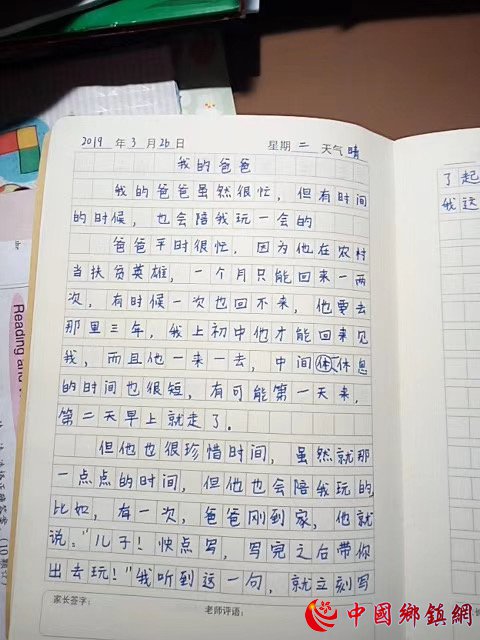 2019 年 3 月 26 日 星期 二 天气 晴
我的爸爸
我的爸爸虽然很忙，但有时间
的时候，也会陪我玩一会的
爸爸平时很忙，因为他在农村
当扶贫英雄，一个月只能回来一两
次，有时候一次也回不来，他要去
那里三年，我上初中他才能回来见
我，而且他一来一去，中间休息
的时间也很短，有可能第一天来，
第二天早上就走了。
但他也很珍惜时间，虽然就那
一点点的时间，但他也会陪我玩的，
比如，有一次，爸爸刚到家，他就
说："儿子！快点写，写完之后带你
出去玩！"我听到这一句，就立刻写
家长签字：
老师评语：
了起
我这
Reading and
中國鄉鎮網